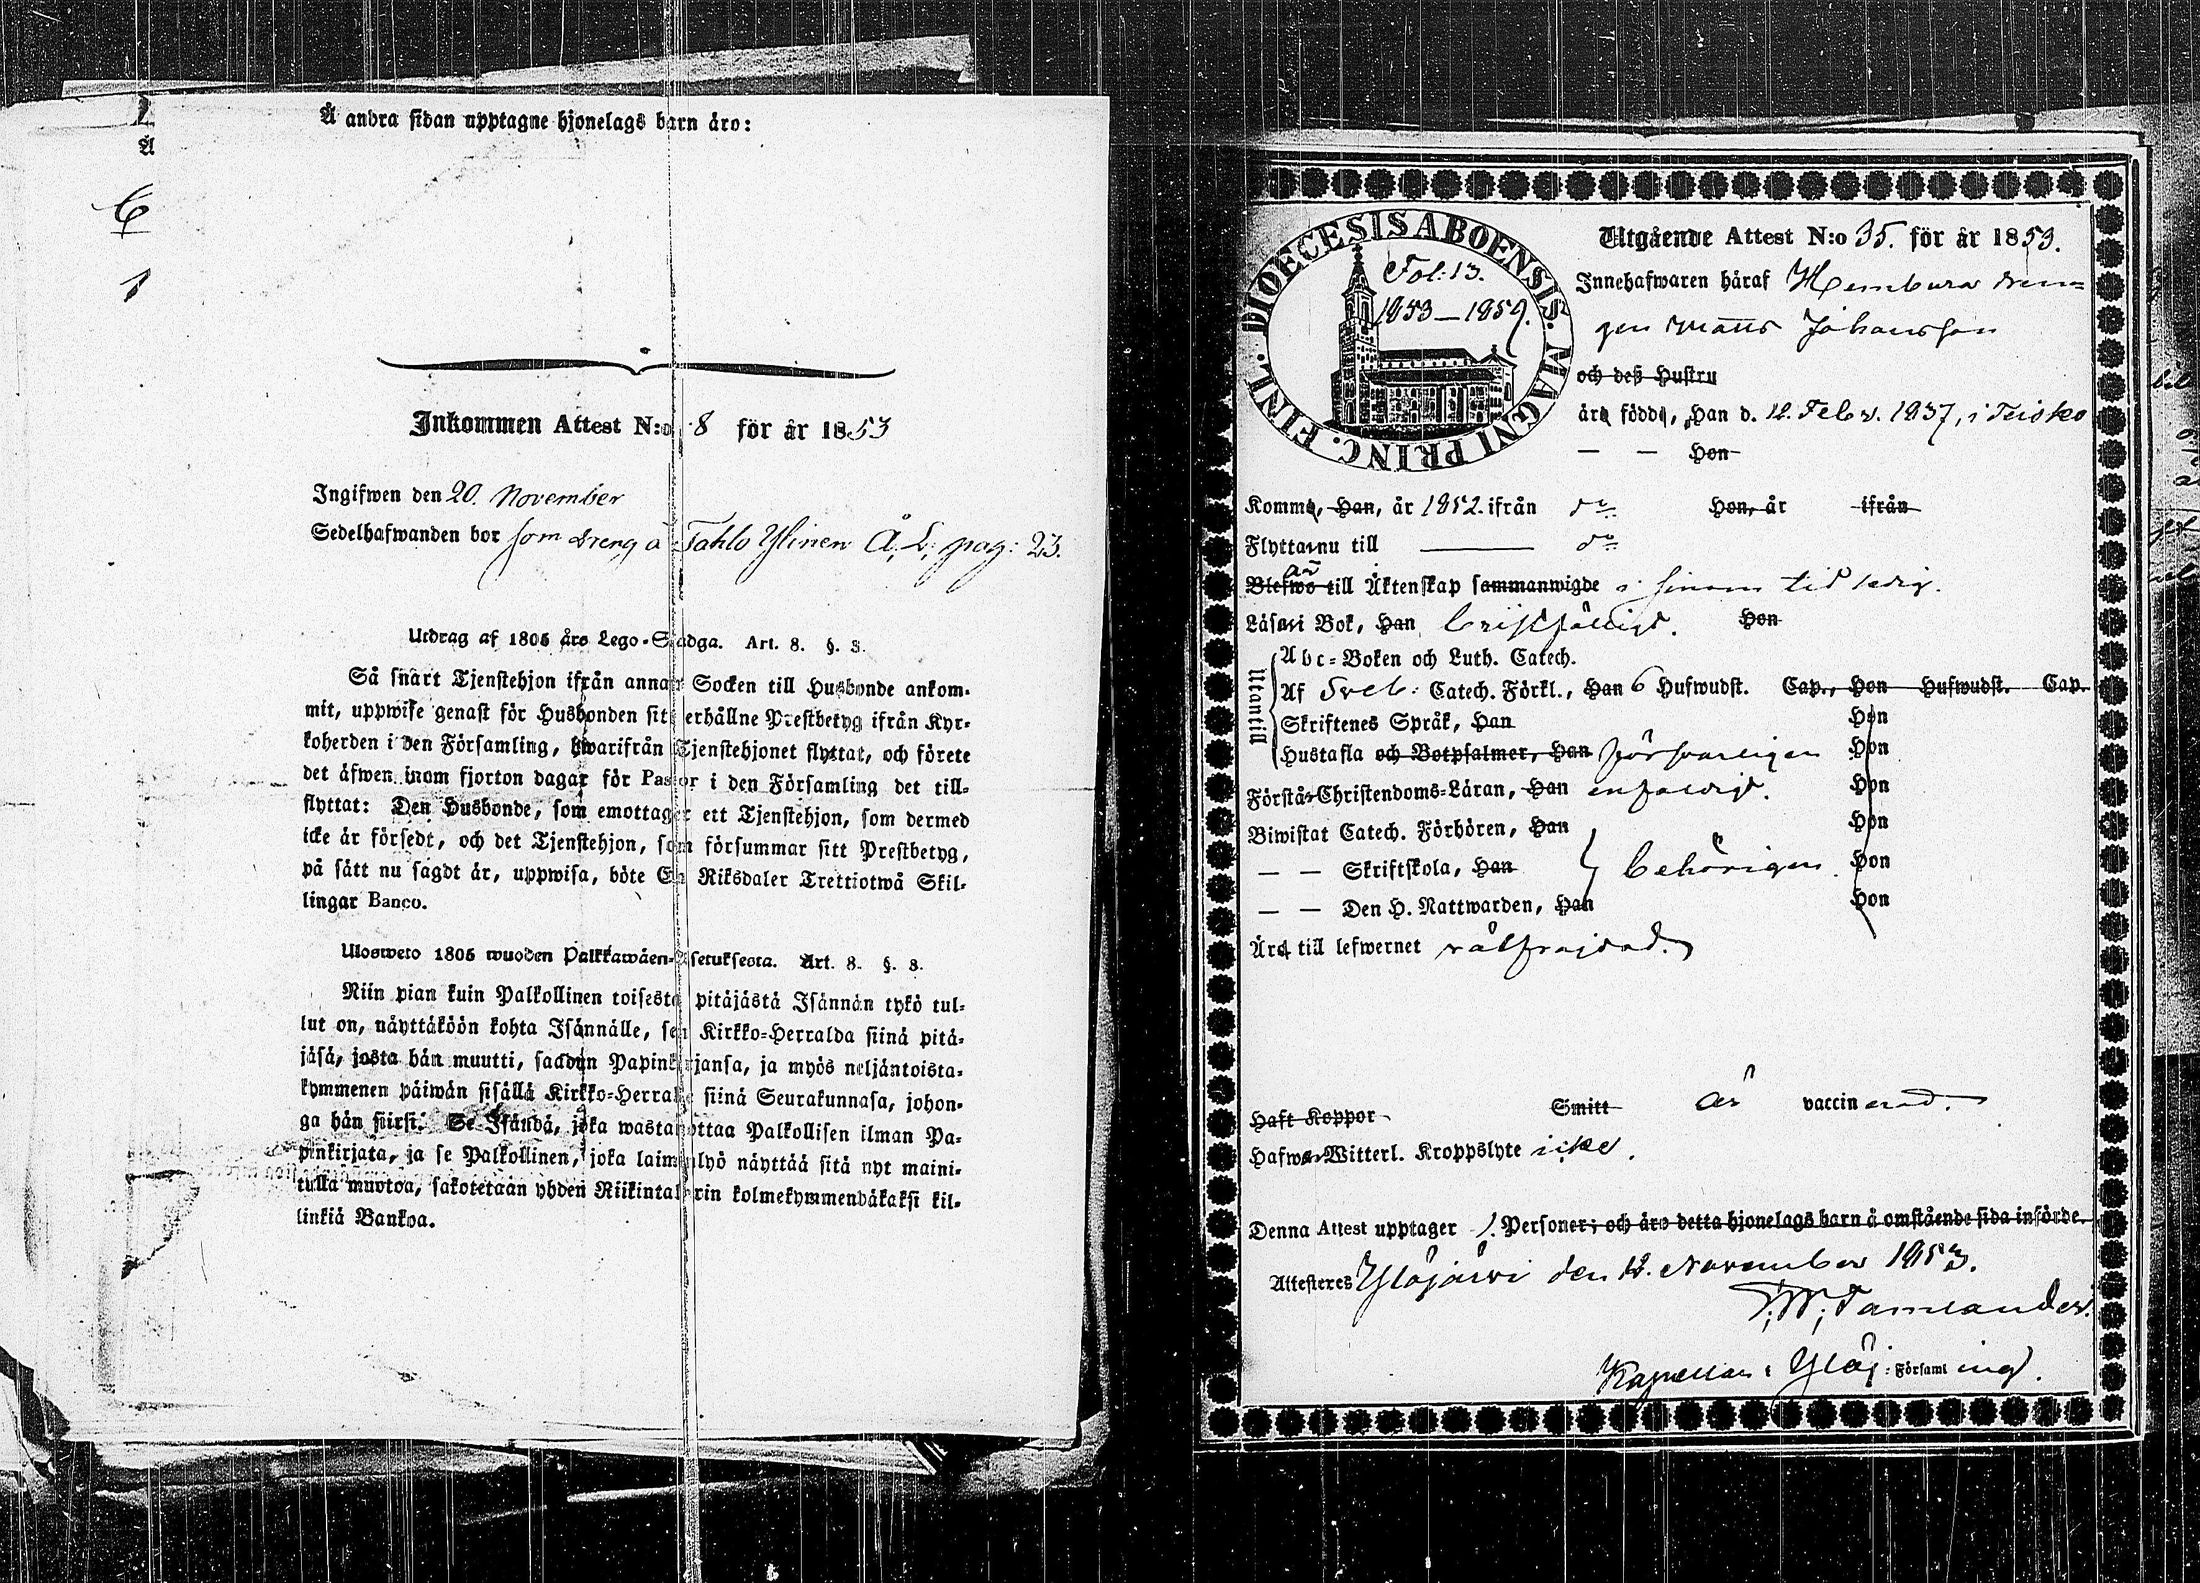 Å andra sidan upptagne hjonelags barn äro:
Inkommen Attest N:o 8 för år 1853
Ingifwen den 20. November
Sedelhafwanden bor som dreng å Tahlo Ylinen Å, L; pag: 23.
Utdrag af 1805 års Lego-Stadga. Art. 8. §. 3.
Så snart Tjenstehjon ifrån annan Socken till Husbonde ankom-
mit, uppwise genast för Husbonden sitt erhållne Prestbetyg ifrån Kyr-
koherden i den Församling, hwarifrån Tjenstehjonet flyttat, och förete
det äfwen inom fjorton dagar för Pastor i den Församling det till-
flyttat: Den Husbonde, som emottager ett Tjenstehjon, som dermed
icke är försedt, och det Tjenstehjon, som försummar sitt Prestbetyg,
på sätt nu sagdt är, uppwisa, böte En Riksdaler Trettiotwå Skil-
lingar Banco.
Ulosweto 1805 wuoden Palkkawäen-Asetuksesta. Art. 8. §. 3.
Niin pian kuin Palkollinen toisesta pitäjästä Isännän tykö tul-
lut on, näyttäköön kohta Isännälle, sen Kirkko-Herralda siinä pitä-
jäsä, josta hän muutti, saadun Papinkirjansa, ja myös neljäntoista-
kymmenen päiwän sisällä Kirkko-Herralle siinä Seurakunnasa, johon-
ga hän siirsi. Se Isändä, joka wastanottaa Palkollisen ilman Pa-
pinkirjata, ja se Palkollinen, joka laiminlyö näyttää sitä nyt maini-
tulla muotoa, sakotetaan yhden Riikintalarin kolmekymmendäkaksi kil-
linkiä Bankoa.
FINL. DIOECESIS ABOENSIS. MAGNI PRINC.
Fol: 13.
1853–1859.
Utgående Attest N:o 35. för år 1853.
Innehafwaren häraf Hembura dren=
gen Matts Johansson
och deß Hustru
äro födde, Han d. 12. Febr. 1837, i Teisko
— — Hon
Komme, Han, år 1852. ifrån do Hon, år ifrån
Flytta nu till —— do
Blefwo till Äktenskap sammanwigde är i sinom tid ledig.
Läsa i Bok, Han bristfälligt. Hon
Utantill
Abc=Boken och Luth. Catech.
Af Sveb: Catech. Förkl., Han 6 Hufwudst. Cap., Hon Hufwudst. Cap.
Skriftenes Språk, Han Hon
Hustafla och Botpsalmer, Han försvarligen Hon
Förstå Christendoms=Läran, Han enfaldigt. Hon
Biwistat Catech. Förhören, Han Hon
— — Skriftskola, Han behörigen. Hon
— — Den H. Nattwarden, Han Hon
Äro till lefwernet välfrejdad.
Haft Koppor Smitt är vaccinerad.
Hafwa Witterl. Kroppslyte icke.
Denna Attest upptager 1. Personer; och äro detta hjonelags barn å omstående sida införde.
Attesteres Ylöjärvi den 12. November 1853.
Tamlander.
Kapellan i Ylöj: Församling.